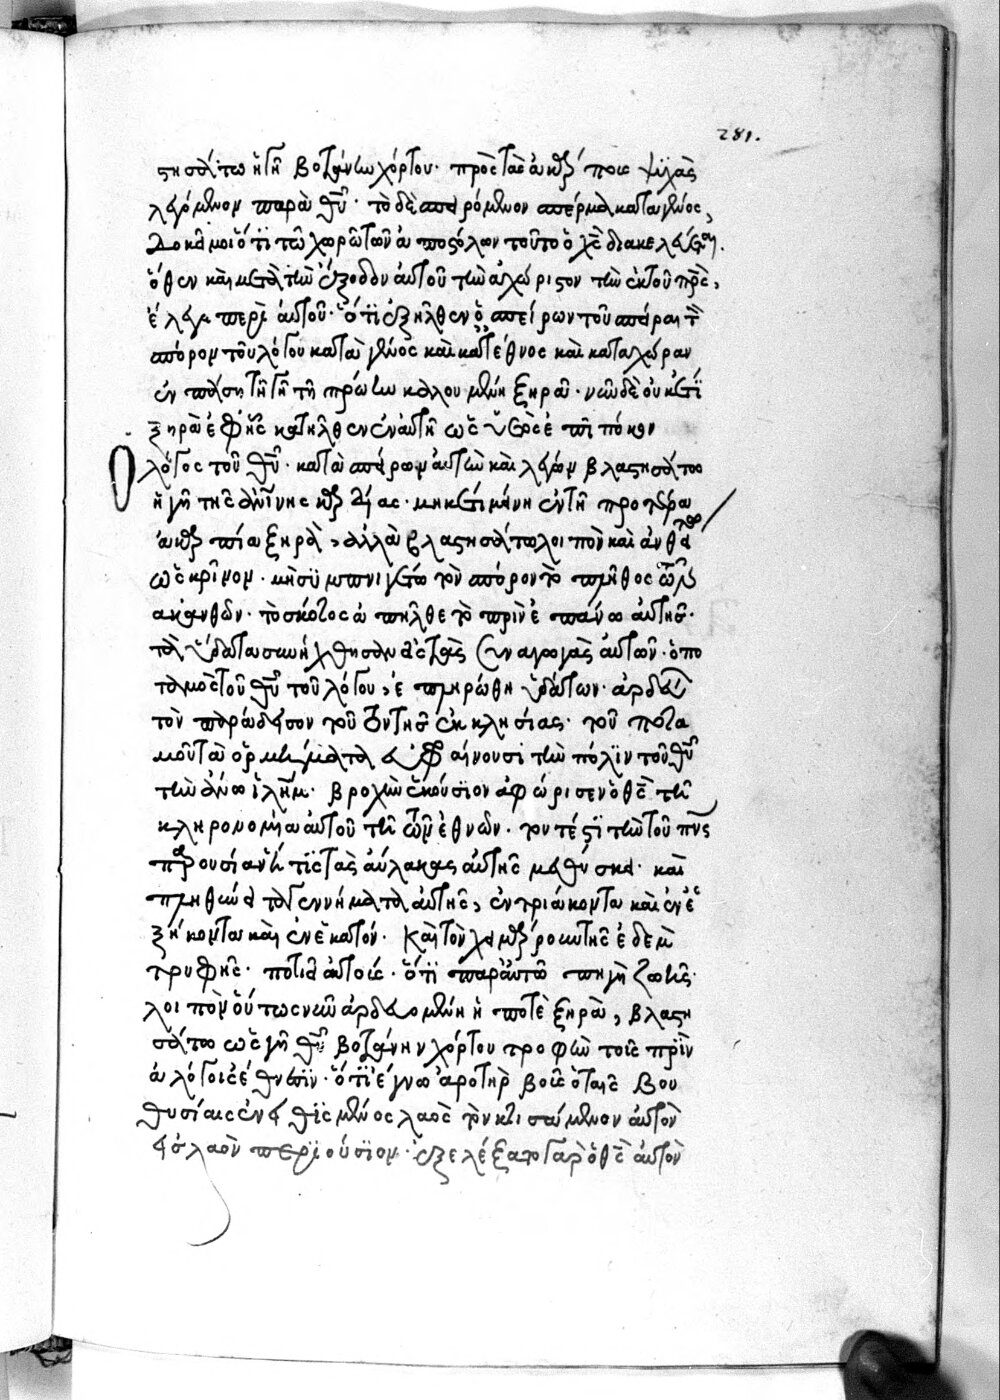 281.
στησάτω ἡ γῆ βοτάνην χόρτου· πρὸς τὰς ἀνθρωπίνας ψυχὰς
λεγόμενον παρὰ θῦ· τὸ δὲ σπειρόμενον σπέρμα κατὰ γένος,
δοκεῖ μοι ὅτι τῷ χορῷ τῶν ἀποστόλων τοῦτο ὁ χς διακελεύεται.
ὅθεν καὶ μετὰ τὴν ἔξοδον αὐτοῦ τὴν ἀχώριστον τὴν ἐκ τοῦ πρς,
ἔλεγε περὶ αὐτοῦ· ὅτι ἐξῆλθεν ὁ σπείρων τοῦ σπεῖραι τὸν
σπόρον τοῦ λόγου κατὰ γένος καὶ κατ' ἔθνος καὶ κατὰ χώραν
ἐν πάσῃ τῇ γῇ τῇ πρώην καλουμένῃ ξηρᾷ· νῦν δὲ οὐκ ἔτι
ξηρὰ ἐφ' ἧς κατῆλθεν ἐν αὐτῇ ὡς ὑετὸς ἐπὶ πόκον
λόγος τοῦ θῦ· κατασπείρων αὐτὴν καὶ λέγων βλαστησάτω
ἡ γῆ τῆς ἀνίνης καρδίας· μηκέτι μένῃ ἐν τῇ προτέρᾳ
ξηρὰ, ἀλλὰ βλαστησάτω λοιπὸν καὶ ἀνθείτω
ὡς κρίνον· μὴ συμπνιγέτω τὸν σπόρον τὸ πλῆθος τῶν
ἀκανθῶν· τὸ σκότος ἀπῆλθε τὸ πρὶν ἐπάνω αὐτῆς·
τὰ ὕδατα συνήχθησαν εἰς τὰς συναγωγὰς αὐτῶν· ὁ πο
ταμὸς τοῦ θῦ τοῦ λόγου, ἐπληρώθη ὑδάτων· ἀρδεύει
τὸν παράδεισον τοῦ ὄντως ἐκκλησίας· τοῦ ποτα
μοῦ τὰ ὁρμήματα εὐφραίνουσι τὴν πόλιν τοῦ θῦ
τὴν ἄνω ἱλήμ· βροχὴν ἑκούσιον ἀφώρισεν ὁ θς τῇ
κληρονομίᾳ αὐτοῦ τῇ τῶν ἐθνῶν· τουτέστι τὴν τοῦ πνς
παρουσίαν ἥτις τὰς αὔλακας αὐτῆς μεθύσκει· καὶ
πληθύνει τὰ γεννήματα αὐτῆς, ἐν τριάκοντα καὶ ἐν ἑ
ξήκοντα καὶ ἐν ἑκατόν· καὶ τὸν χειμάρρουν τῆς ἐδὲμ
τρυφῆς· ποτιεῖ αὐτοὺς· ὅτι παρ' αὐτῷ πηγὴ ζωῆς·
λοιπὸν οὕτως νῦν ἀρδευομένη ἡ ποτὲ ξηρὰ, βλαστη
σάτω ὡς γῆ θῦ βοτάνην χόρτου τροφὴν τοῖς πρὶν
ἀλόγοις ἔθνεσιν· ὅτι ἔγνω ἀροτὴρ βοῦς ὁ ταῖς βου
θυσίαις ἐνευθισμένος λαὸς τὸν κτησάμενον αὐτὸν
εἰς λαὸν περιούσιον· ἐξελέξατο γὰρ ὁ θς αὐτὸν